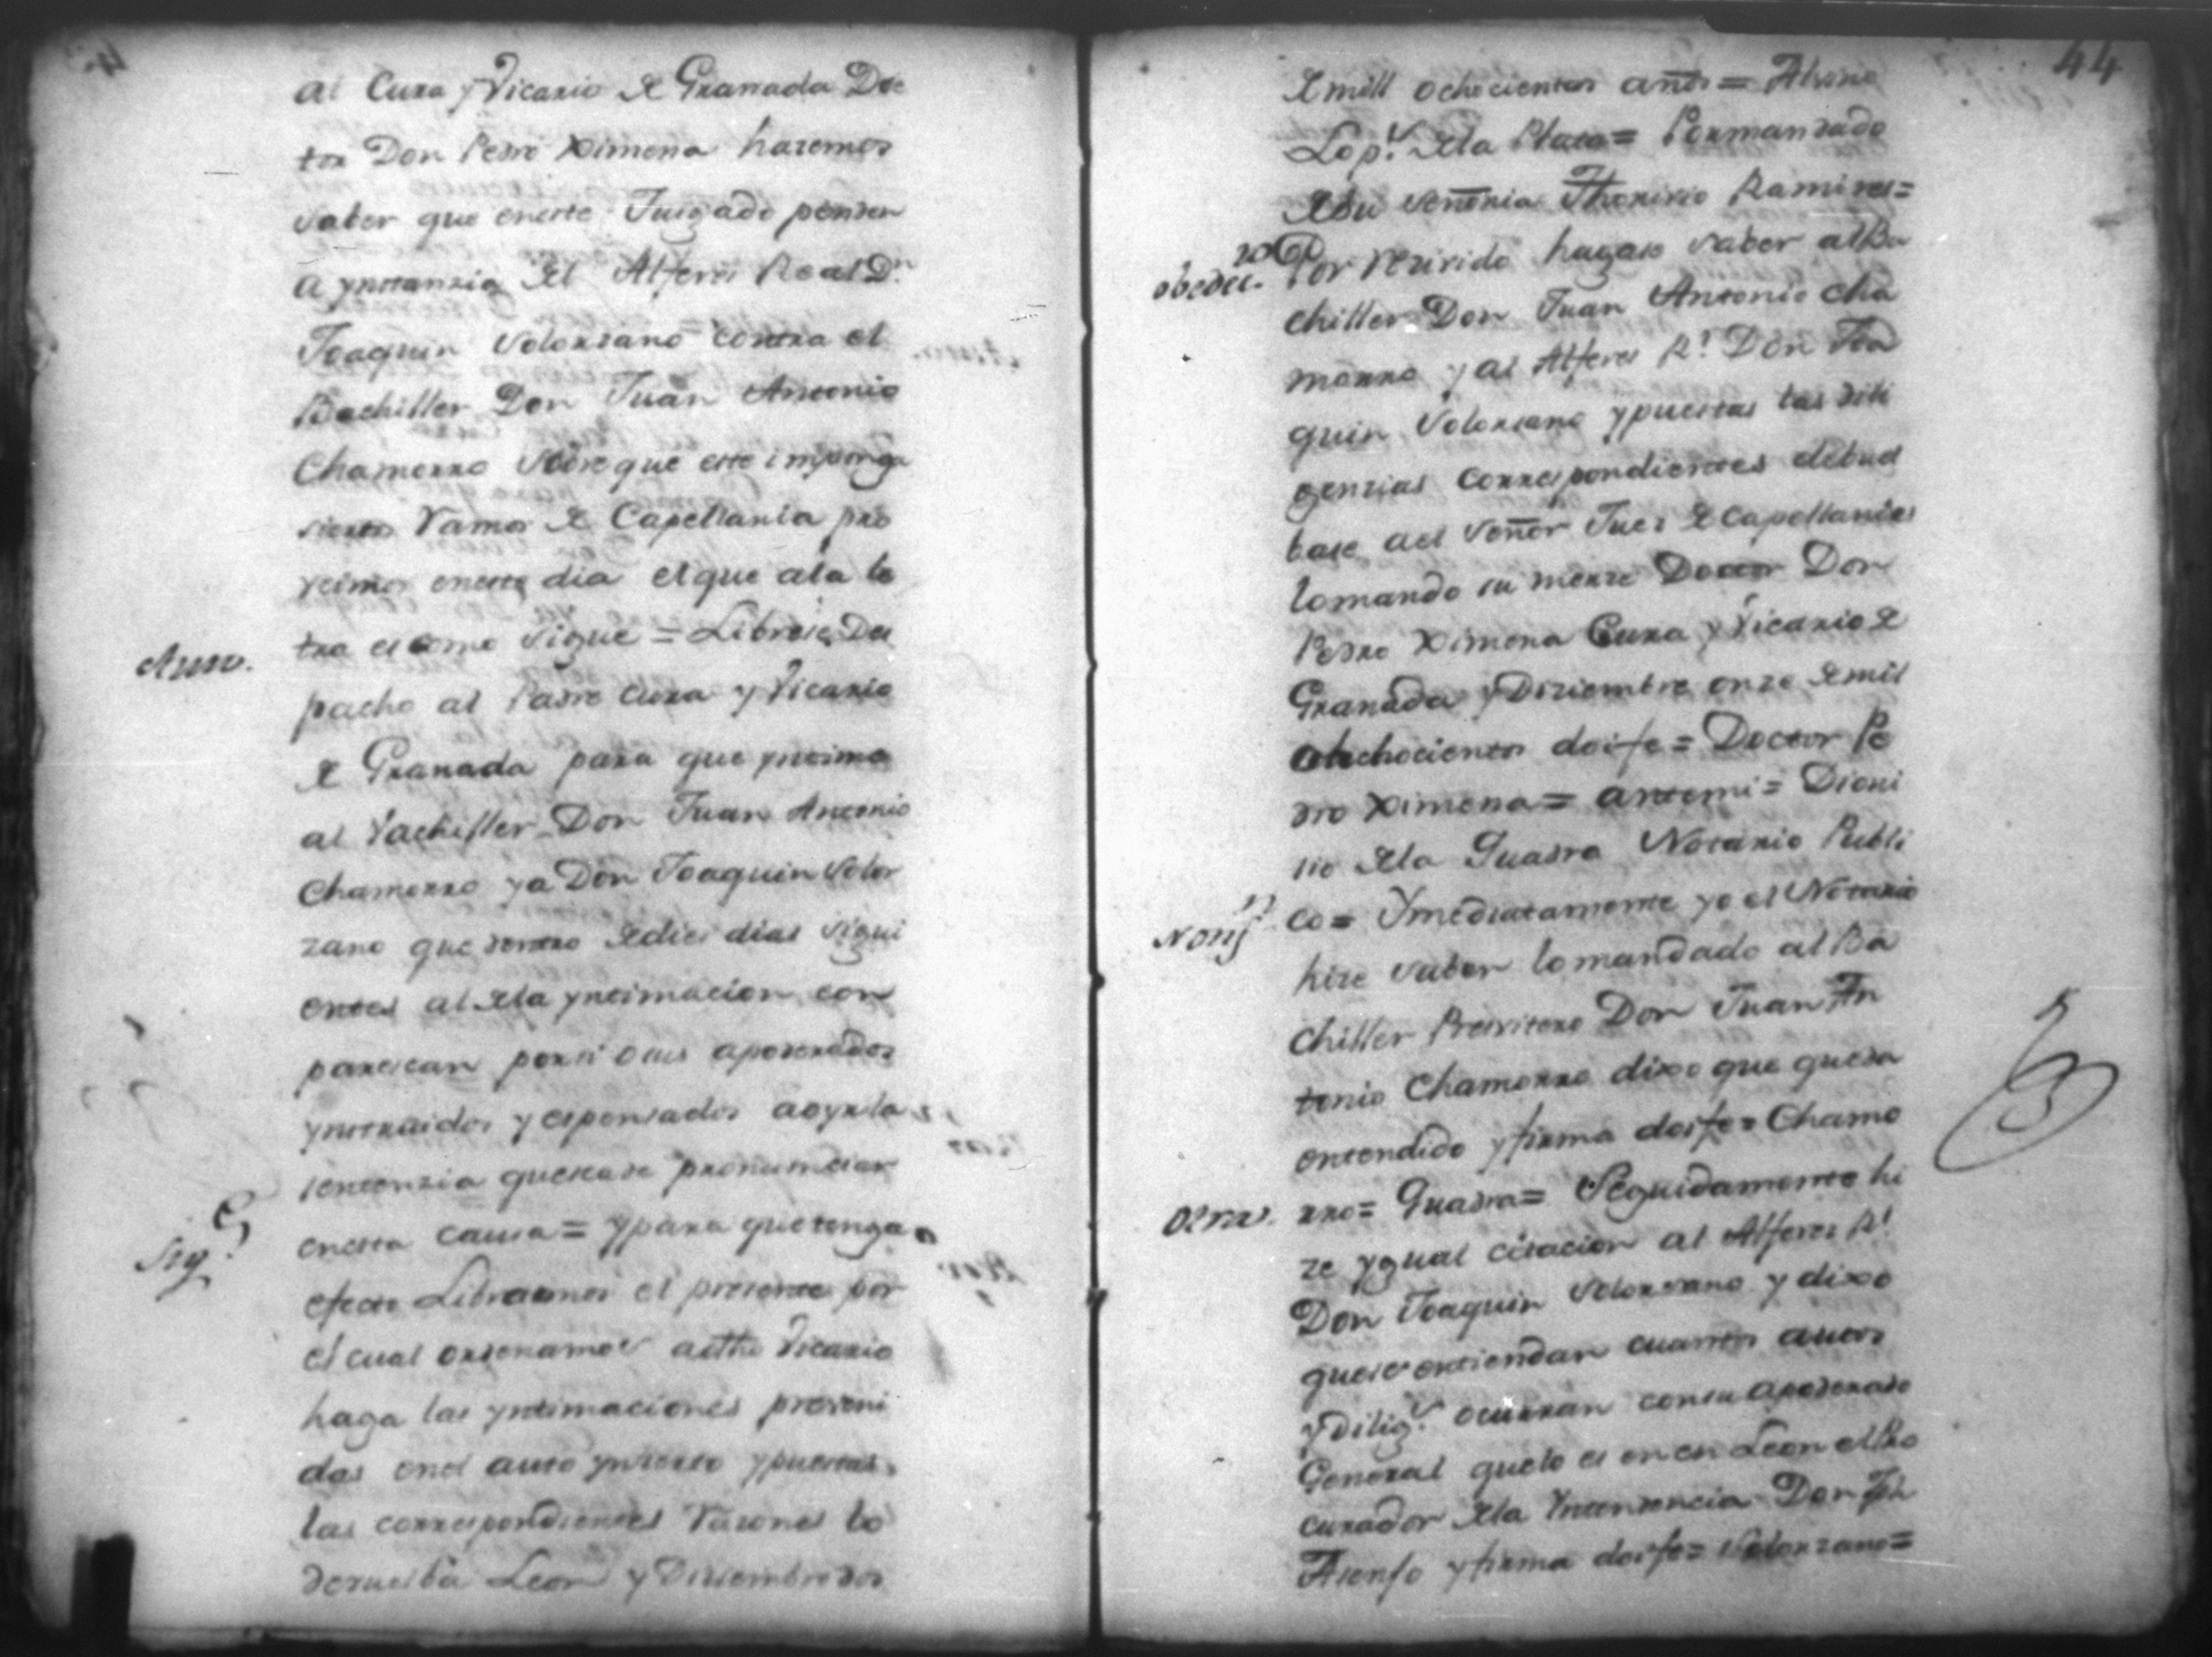 al Cura y Vicario de Granada Doc
tor Don Pedro Ximena hazemos
saber que eneste Juzgado penden
a ynstanzia del Alferes Real Dn.
Joaquin Solorzano contra el
Bachiller Don Juan Antonio
Chamorro sobre que este imponga
siertos Ramos de Capellania pro
veimos eneste dia el que ala le
Auto.
tra es como sigue = Librese Des
pacho al Padre Cura y Vicario
de Granada para que yntime
al Vachiller Don Juan Antonio
Chamorro ya Don Joaquin Solor
zano que dentro de dies dias sigui
entes al dela yntimacion com
parescan porsi o sus apoderados
ynstruidos y espensados aoyr la
sentenzia que seade pronunciar
Sig.
enesta causa = ypara que tenga
efecto Libramos el presente por
el cual ordenamos adho Vicario
haga las yntimaciones preveni
das enel auto ynserto ypuestas
las correspondientes rasones lo
debuelba Leon y Diziembre dos
44
de mill ochocientos años =
Lopz. dela Plata = Pormandado
desu señoria Dionisio Ramires =
obedec.
Por resivido hagase saber al Ba
chiller Don Juan Antonio Cha
morro y al Alferes Rl. Don Joa
quin Solorzano ypuestas las dili
genzias correspondientes debuel
base ael señor Jues de Capellanias
lomando su merze Doctor Don
Pedro Ximena Cura y Vicario de
Granada y Diziembre onze de mil
ochocientos doife = Doctor Pe
dro Ximena = antemi = Dioni
sio dela Quadra Notario Publi
Notifn.
co = Ymediatamente yo el Notario
hize saber lo mandado al Ba
chiller Presvitero Don Juan An
tonio Chamorro dixo que queda
entendido y firma doife = Chamo
Otra.
rro = Quadra = Seguidamente hi
ze ygual citacion al Alferes Rl.
Don Joaquin Solorzano y dixo
que se entiendan cuantos autos
y diligs. ocurran consu apoderado
General quelo es en en Leon el Pro
curador dela Yntendencia Don
Asenjo y firma doife = Solorzano =